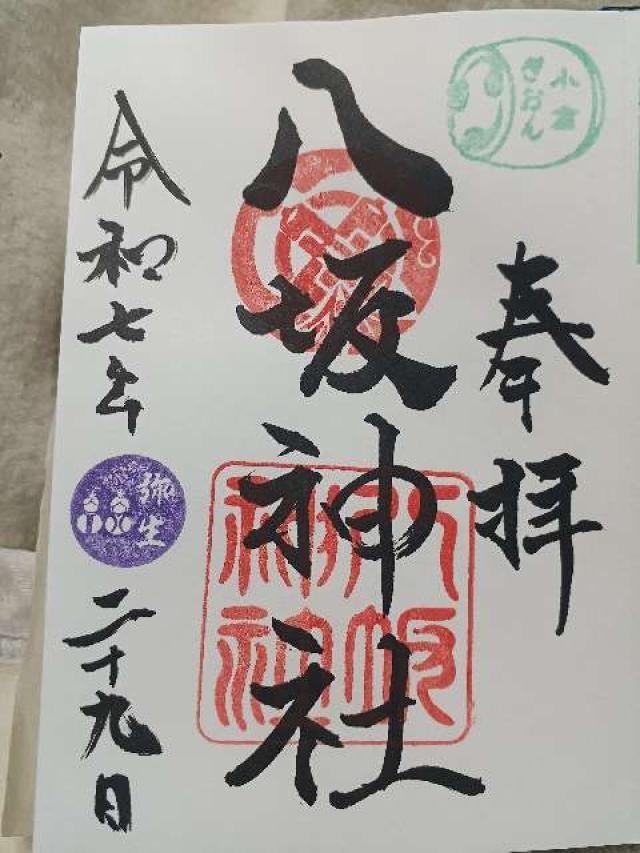 小倉
ぎおん
奉拝
八坂神社
八坂
神社
令和七年
弥生
二十九日